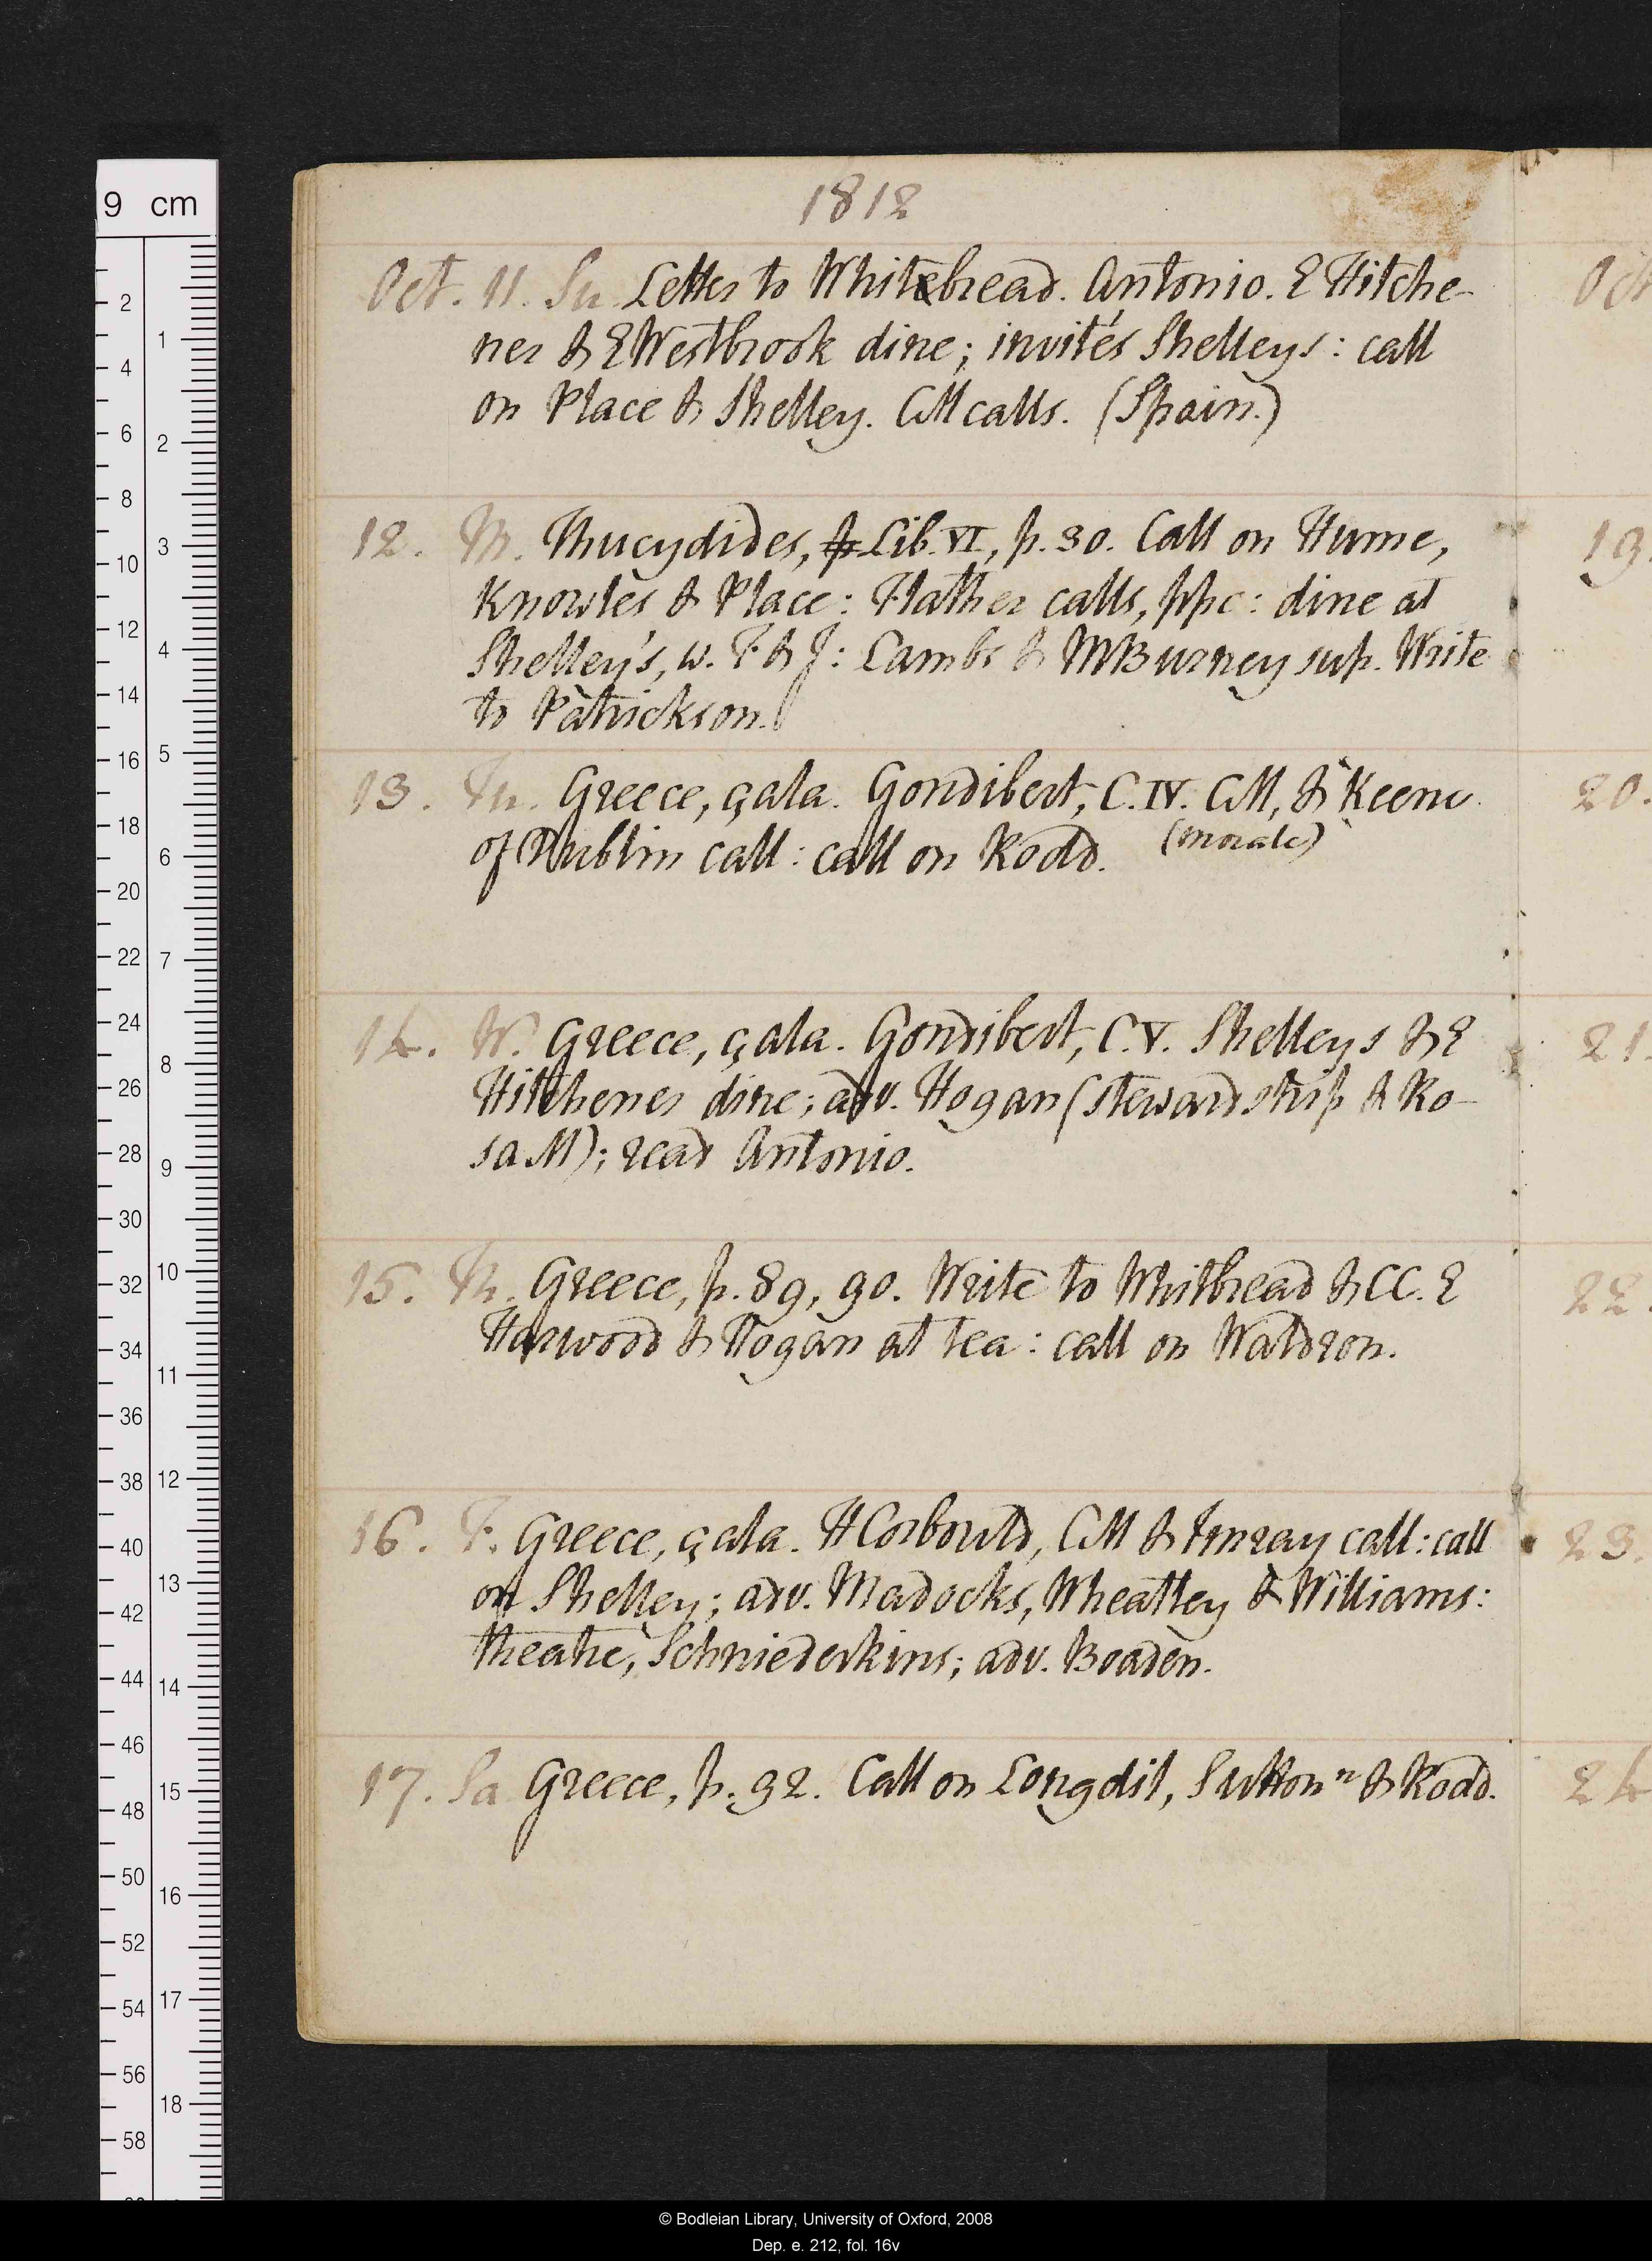 1812
Oct. 11. Su Letter to Whitebread. Antonio. E Hitche-
ner & E Westbrook dine; invités Shelleys: call
on Place & Shelley. CM calls. (Spain.)
12. M. Thucydides, p Lib. VI, p. 30. Call on Hume,
Knowles & Place: Flather calls, ppc: dine at
Shelley's, w. F & J: Lambs & MBurney sup. Write
to Patrickson.
13. Tu. Greece, çala. Gondibert, C. IV. CM, & Keene
of Dublin call: call on Rodd. (morals)
14. W. Greece, çala. Gondibert, C. V. Shelleys & E
Hitchener dine; adv. Hogan (stewardship & Ro-
sa M); read Antonio.
15. Th. Greece, p. 89, 90. Write to Whitbread & CC. E
Harwood & Hogan at tea: call on Waldron.
16. F. Greece, çala. H Corbould, CM & Imray call: call
on Shelley; adv. Madocks, Wheatley & Williams:
theatre, Schniederkins; adv. Boaden.
17. Sa Greece, p. 92. Call on Longdil, Sutton n & Rodd.
Oct
19.
20.
21.
22.
23.
24
9 cm
2
4
6
8
10
12
14
16
18
20
22
24
26
28
30
32
34
36
38
40
42
44
46
48
50
52
54
56
58
1
2
3
4
5
6
7
8
9
10
11
12
13
14
15
16
17
18
© Bodleian Library, University of Oxford, 2008
Dep. e. 212, fol. 16v